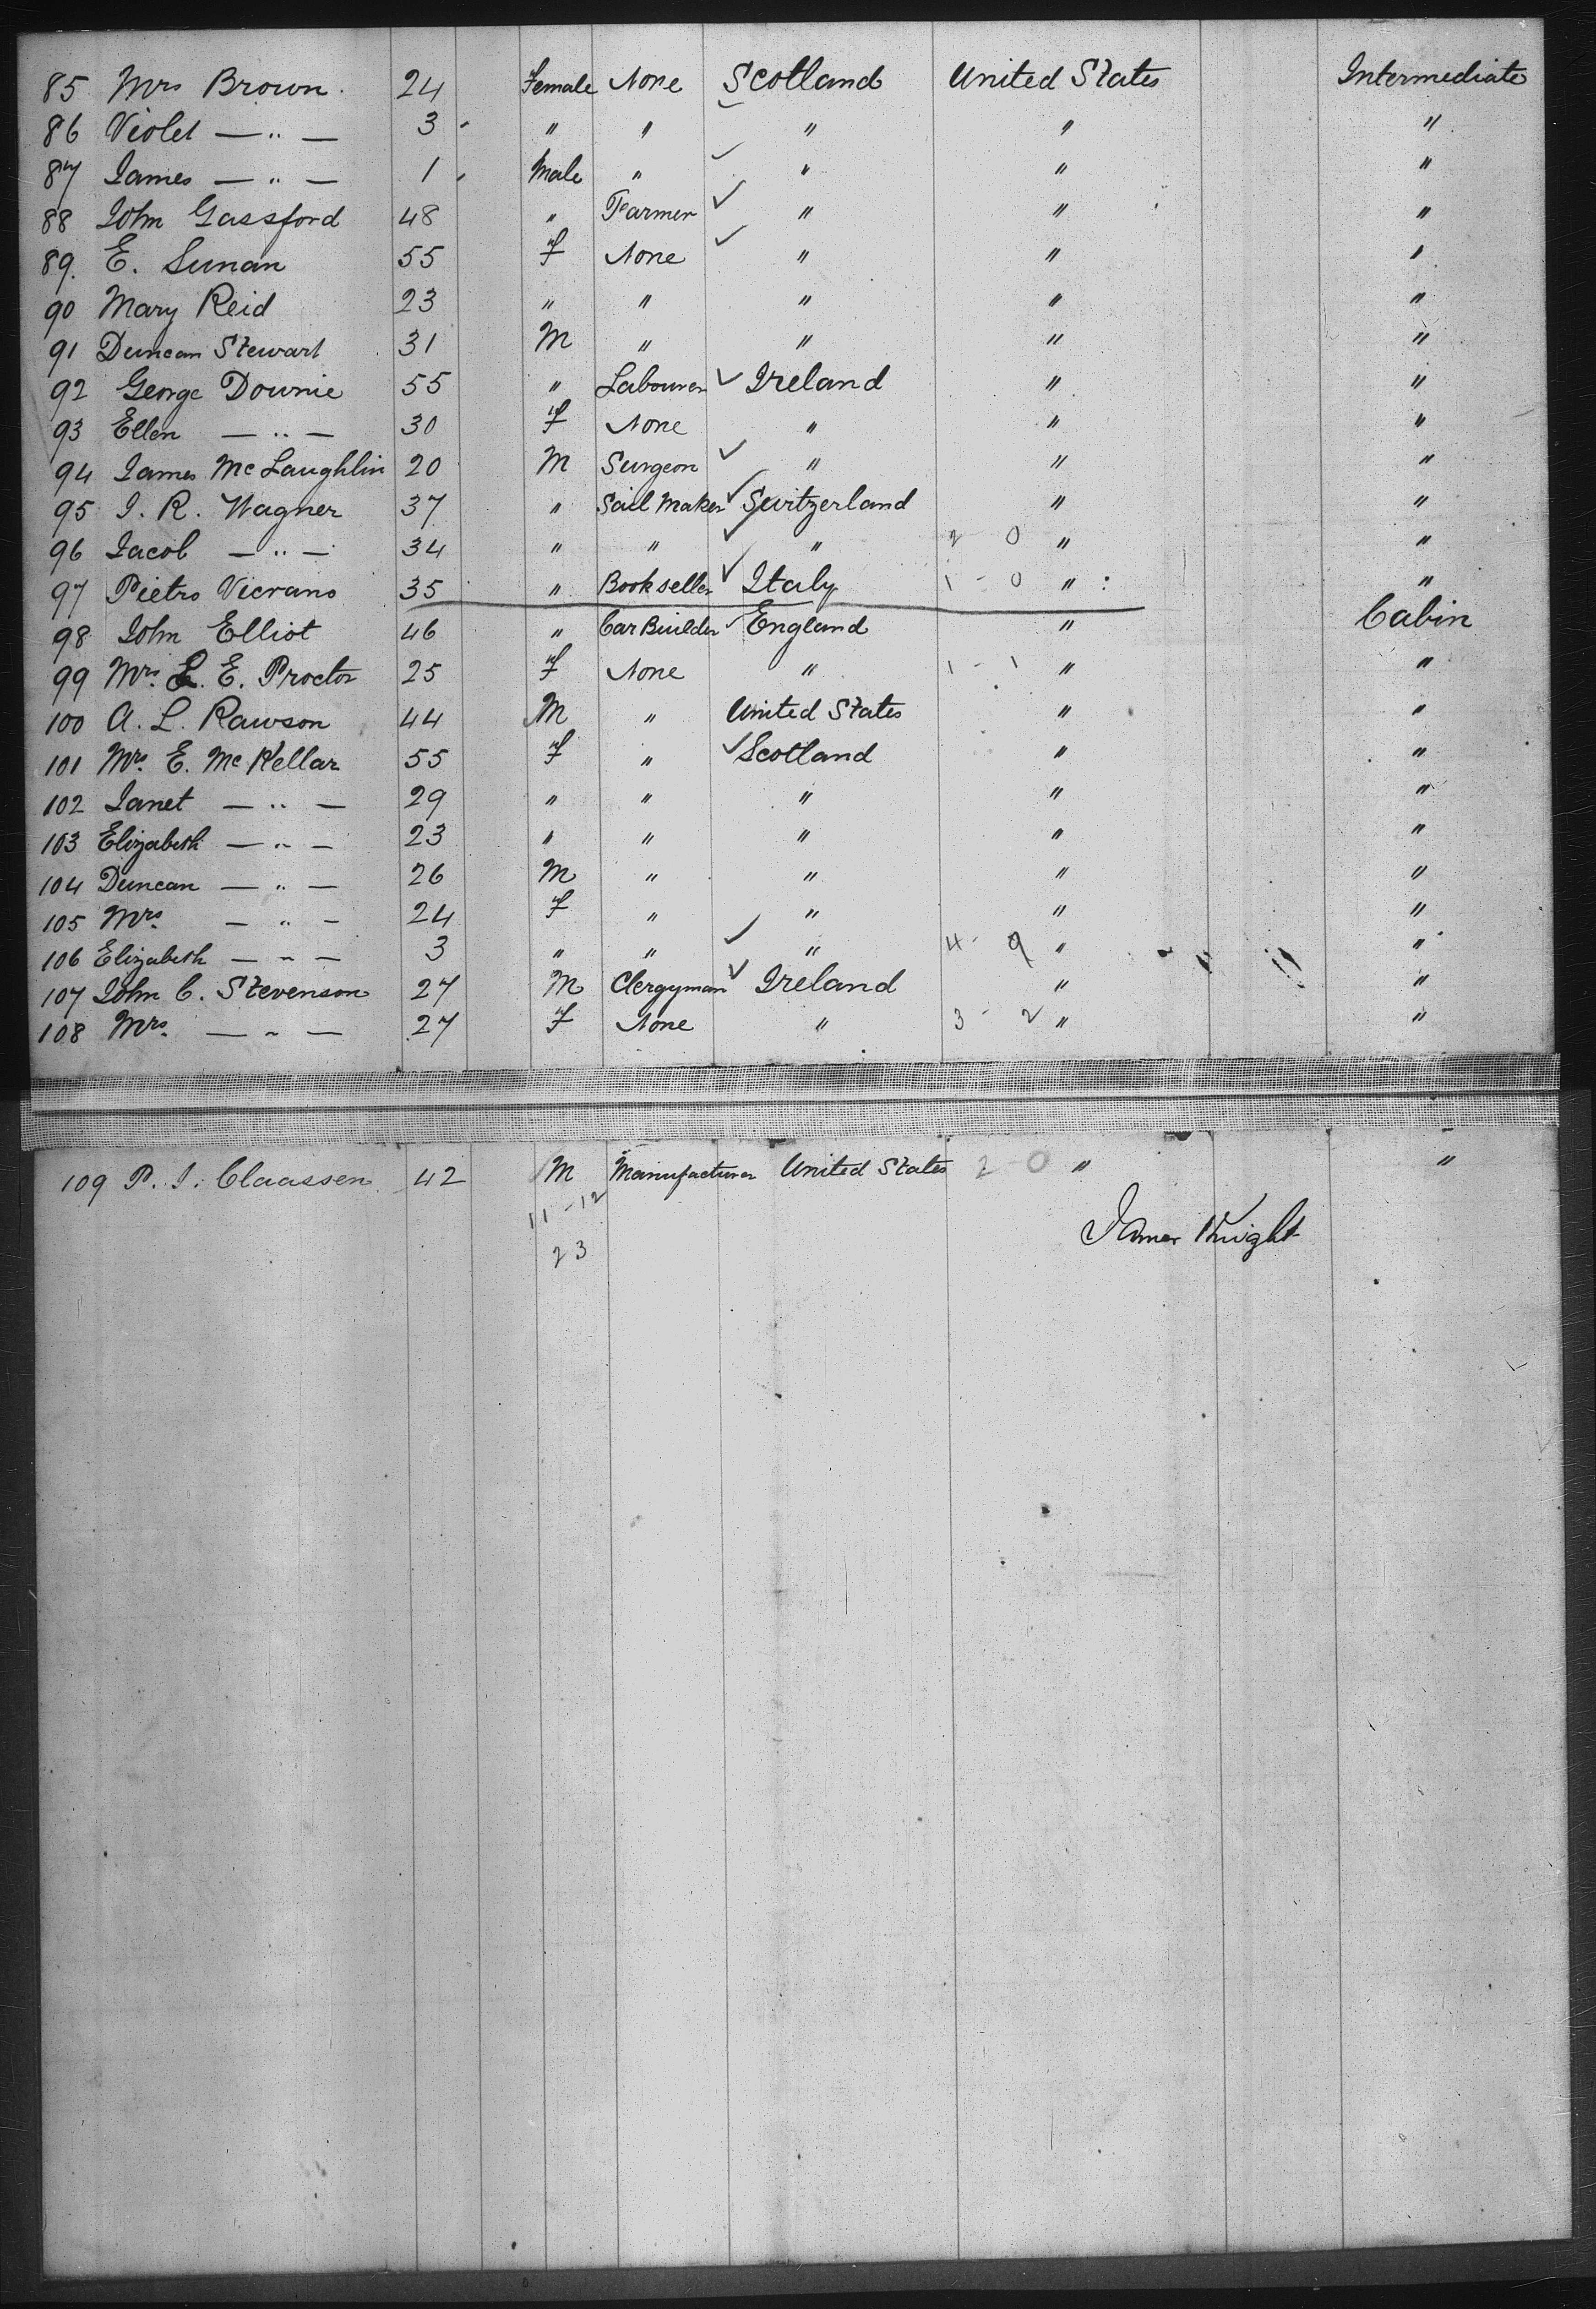 85 Mrs Brown. 24 Female None Scotland United States Intermediate
86 Violet — " — 3 " " " " "
87 James — " — 1 Male " " " "
88 John Gassford 48 " Farmer ✓ " " "
89. E. Sunan 55 F None ✓ " " "
90 Mary Reid 23 " " " " "
91 Duncan Stewart 31 M " " " "
92 George Downie 55 " Labourer ✓ Ireland " "
93 Ellen — " — 30 F None " " "
94 James McLaughlin 20 M Surgeon ✓ " " "
95 J. R. Wagner 37 " Sail Maker ✓ Switzerland " "
96 Jacob — " — 34 " " ✓ " 2 0 " "
97 Pietro 35 " Bookseller ✓ Italy 1 - 0 " "
98 John Elliot 46 " Car Builder ✓ England " Cabin
99 Mrs. L. E. Proctor 25 F None " 1 - 1 " "
100 A. L. Rawson 44 M " United States " "
101 Mrs. E. McKellar 55 F " ✓ Scotland " "
102 Janet — " — 29 " " " " "
103 Elizabeth — " — 23 " " " " "
104 Duncan — " — 26 M " " " "
105 Mrs. — " — 24 F " " " "
106 Elizabeth — " — 3 " " ✓ " 4 - 9 " "
107 John C. Stevenson 27 M Clergyman ✓ Ireland " "
108 Mrs. — " — 27 F None " 3 - 2 " "
109 P. J. Claassen 42 M Manufacturer United States 2 - 0 " "
11 - 12
James Knight
23